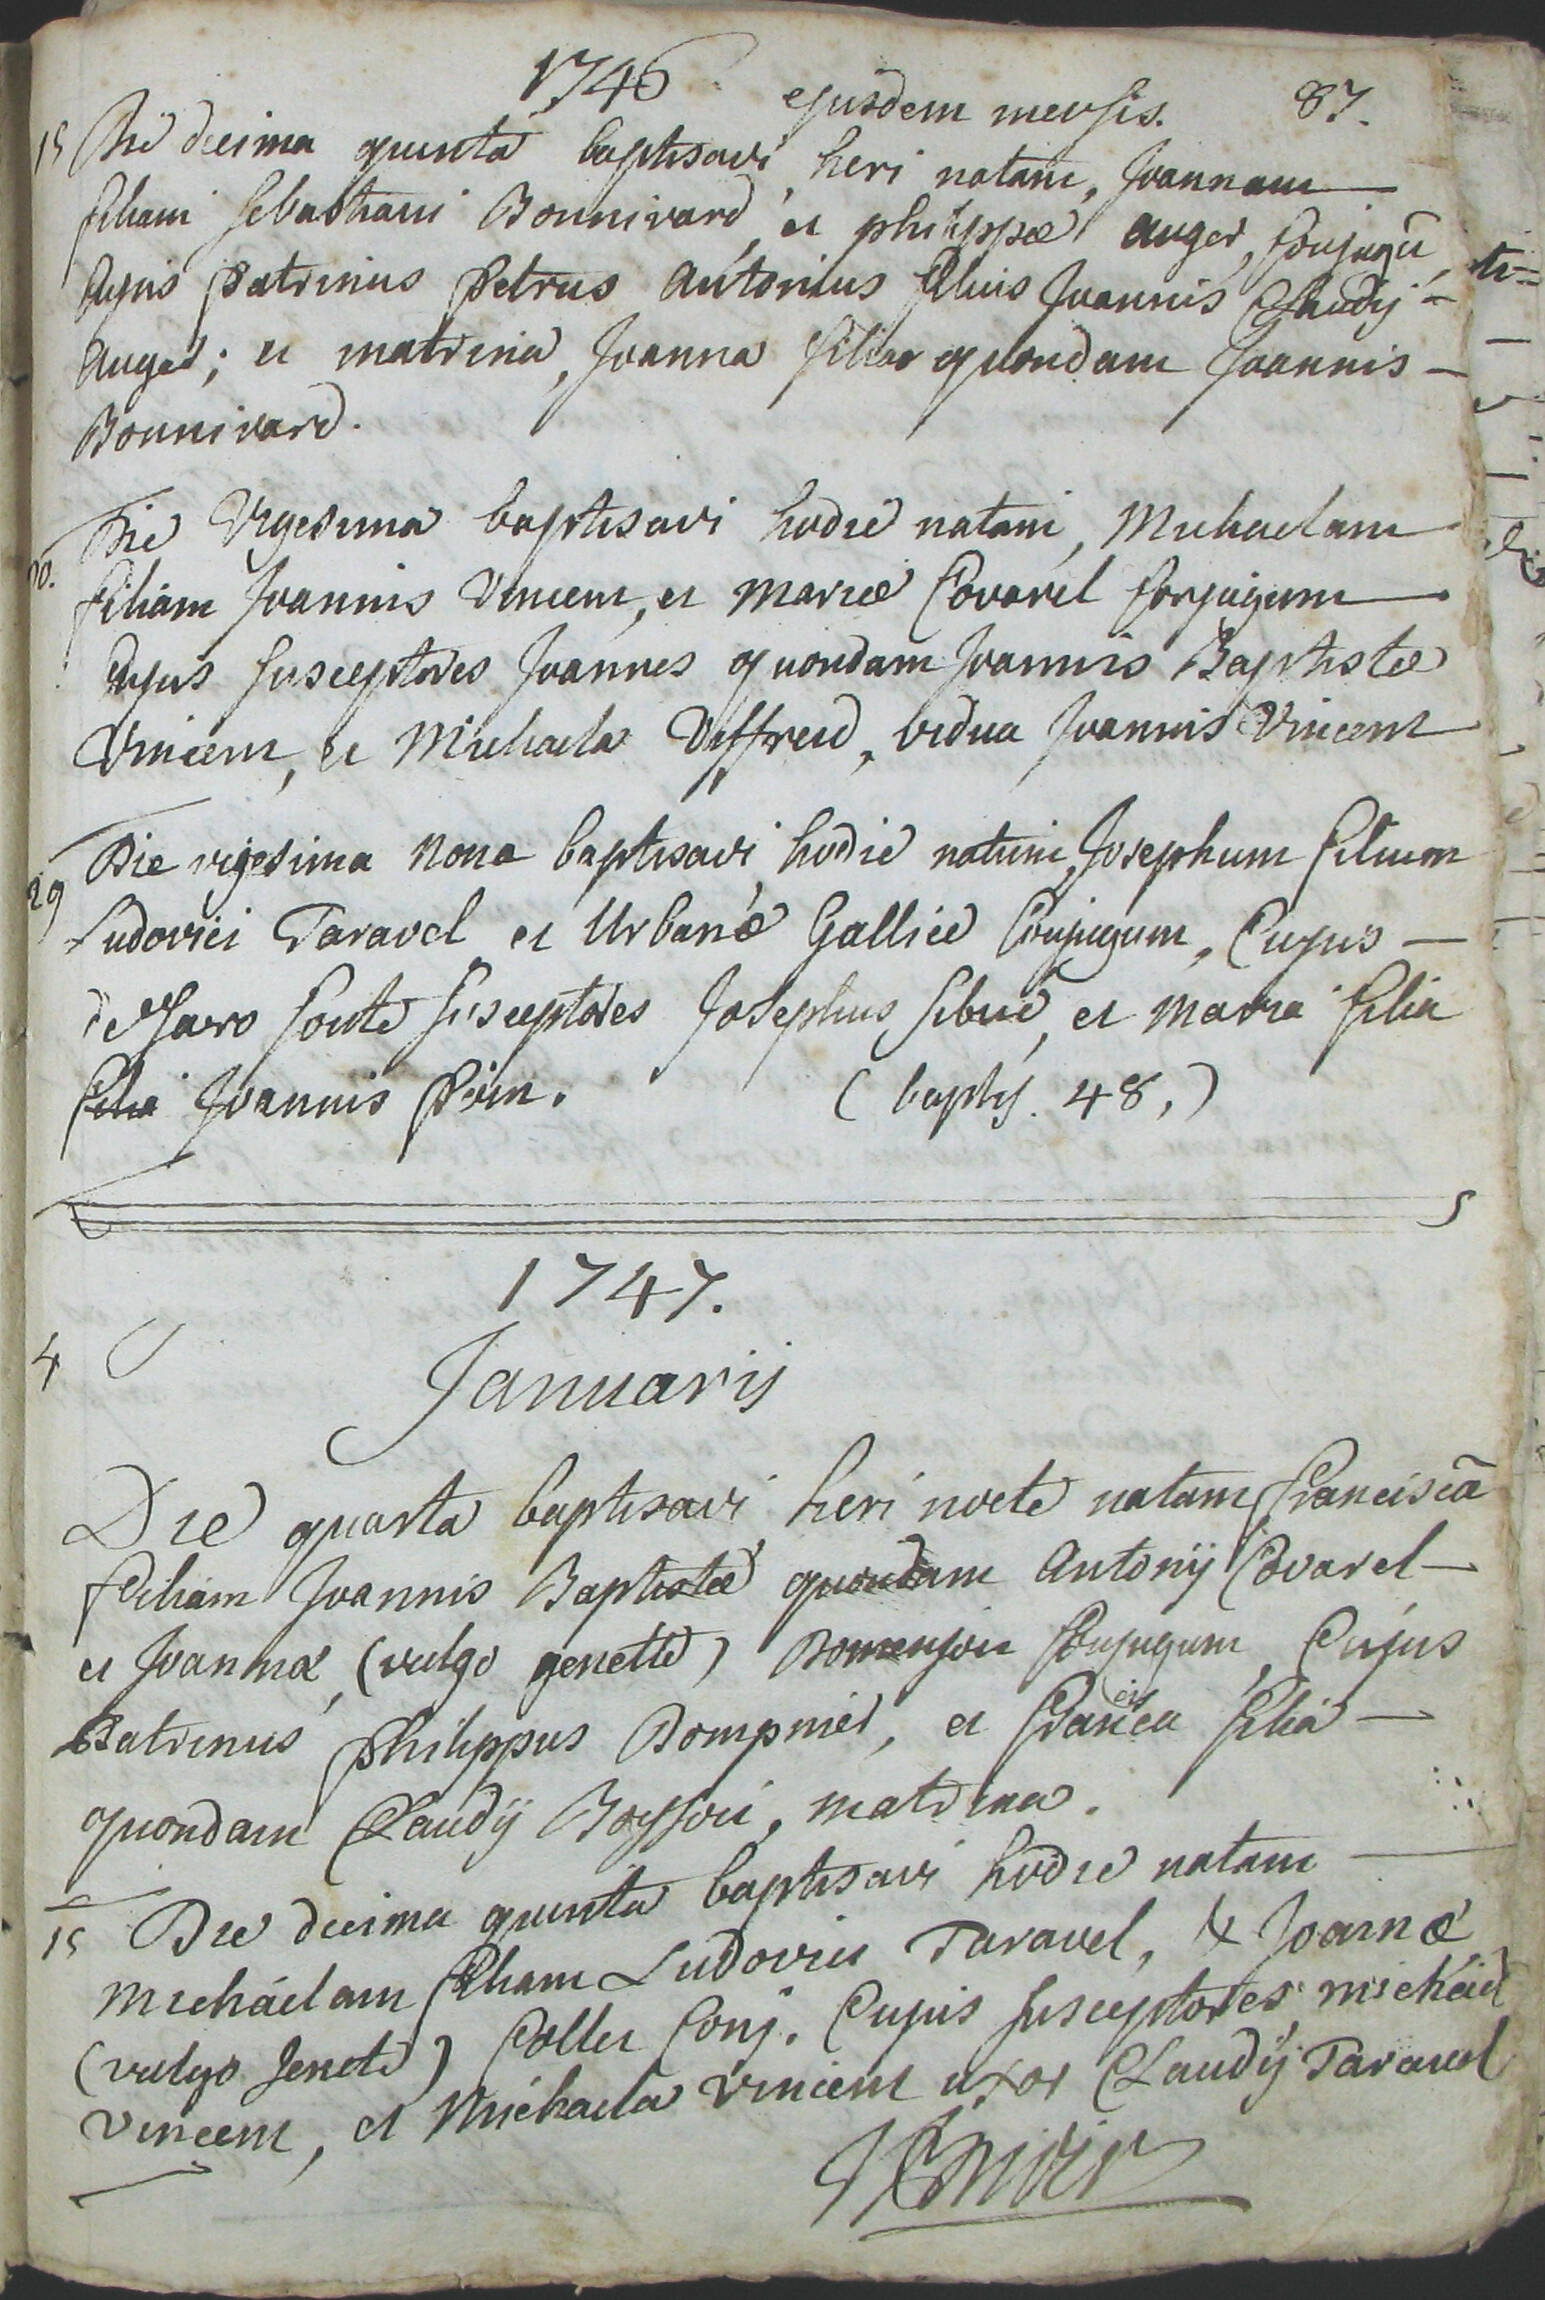 1746 ejusdem mensis. 87.
15 Die decima quinta baptisavi heri natam, Joannam
filiam Sebastiani Bonnivard, et philippæ auger, Conjugũ,
Cujus Patrinus Petrus Antonius filius Joannis Claudij
Auger; et matrina, Joanna filia quondam Joannis
Bonnivard.
20. Die Vigesima baptisavi hodie natam, Michaelam
filiam Joannis Vincent, et Mariæ Covarel Conjugum
Cujus Susceptores Joannes quondam Joannis Baptistæ
Vincent, et Michaela Viffreid, vidua Joannis Vincent
29 Die vigesima nona baptisavi hodie natum, Josephum filium
Ludovici Taravel et Urbanæ Gallice Conjugum, Cujus
de Sacro fonte Susceptores Josephus Sibué, et Maria filia
filia Joannis
(baptis. 48.)
1747.
4
Januarij
Die quarta baptisavi heri nocte natam Franciscã
filiam Joannis Baptistæ quondam Antonij Covarel
et Joannæ, (vulgo genette) Domenjon Conjugum, Cujus
Patrinus Philippus Dompnier, et Franca filia
quondam Claudij Boisson, matrina.
15 Die decima quinta baptisavi hodie natam
Michaelam filiam Ludovici Taravel, & Joannæ
(vulgo Jenete) Collet Conj. Cujus Susceptores Michael
Vincent, et Michaela Vincent uxor Claudij Taravel